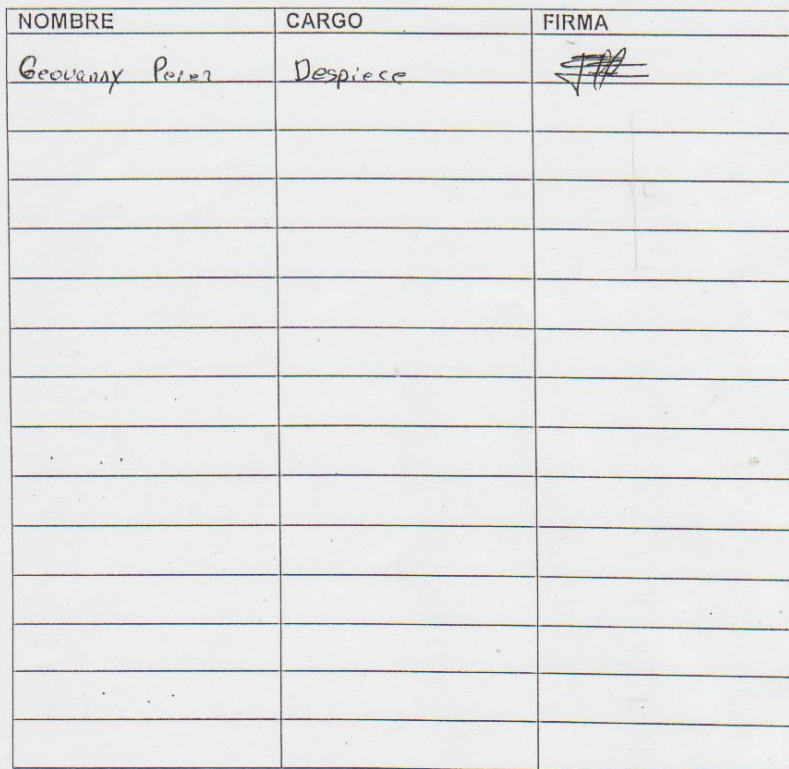 NOMBRE CARGO FIRMA
Geovanny Perez Despiece